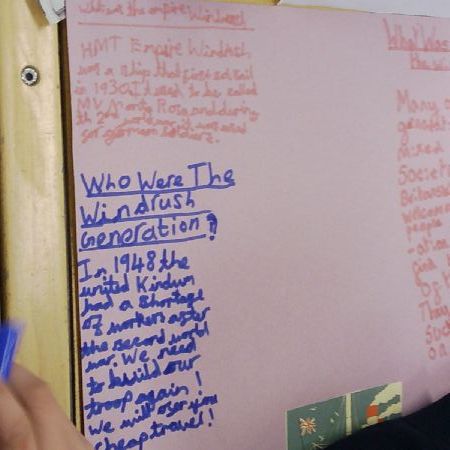 was the empire Windrush
HMT Empire Windrush
was a ship that first set sail
in 1930. It used to be called
MV Monty Rosa and during
the 2nd world war it was used
for german soldiers.
Who Were The
Windrush
Generation?
In 1948 the
united Kindum
had a shortage
of workers after
the second world
war. We need
to build our
troop again!
We will offer you
cheap travel!
What Was
the wi
Many
greatest
mixed
Societ
British
welcome
people
find
Of
They
Such
on